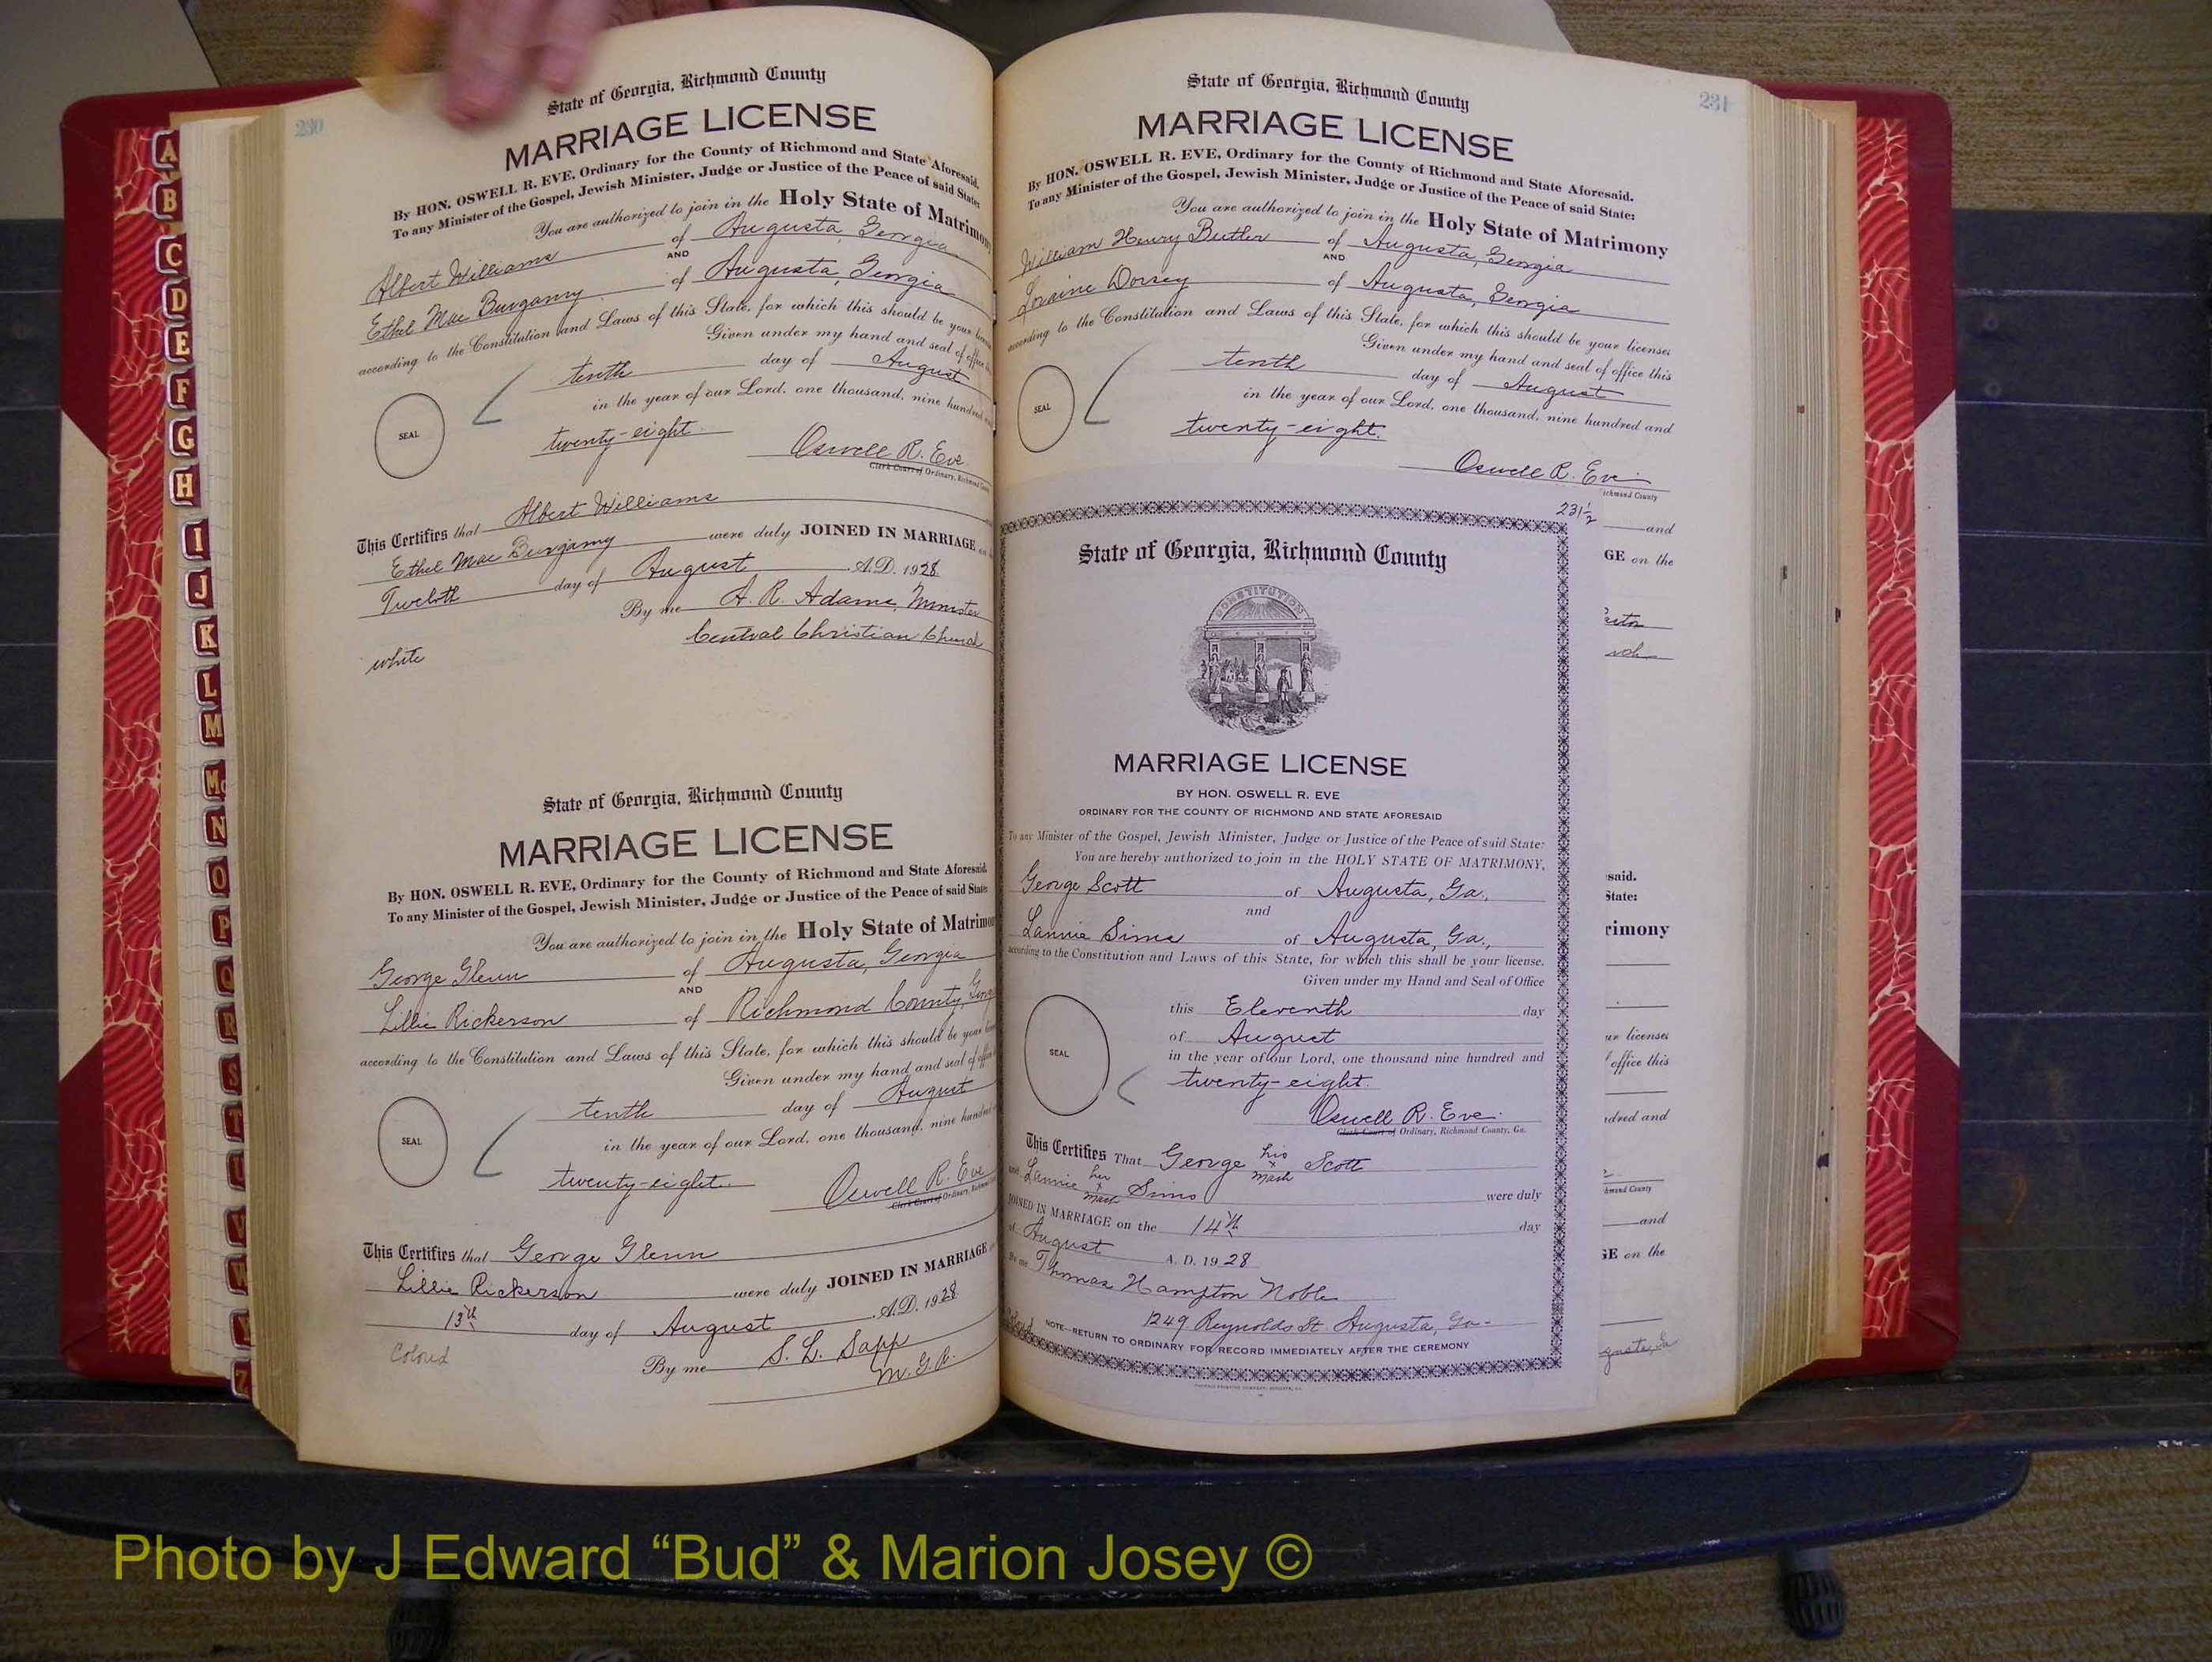 230
State of Georgia, Richmond County
MARRIAGE LICENSE
By HON. OSWELL R. EVE, Ordinary for the County of Richmond and State Aforesaid.
To any Minister of the Gospel, Jewish Minister, Judge or Justice of the Peace of said State:
You are authorized to join in the Holy State of Matrimony
Albert Williams of Augusta, Georgia
AND
Ethel Mae Burgamy of Augusta, Georgia
according to the Constitution and Laws of this State, for which this should be your
Given under my hand and seal of office
tenth day of August
in the year of our Lord, one thousand, nine hundred
SEAL
twenty-eight.
Oswell R. Eve
Clerk Court of Ordinary, Richmond County
This Certifies that Albert Williams
Ethel Mae Burgamy were duly JOINED IN MARRIAGE
Twelvth day of August A.D. 1928
By me A. R. Adams, Minister
Central Christian Church
white
State of Georgia, Richmond County
MARRIAGE LICENSE
By HON. OSWELL R. EVE, Ordinary for the County of Richmond and State Aforesaid.
To any Minister of the Gospel, Jewish Minister, Judge or Justice of the Peace of said State:
You are authorized to join in the Holy State of Matrimon
George Glenn of Augusta, Georgia
AND
Lillie Rickerson of Richmond County,
according to the Constitution and Laws of this State, for which this should be your
Given under my hand and seal of
tenth day of August
in the year of our Lord, one thousand, nine hundred
SEAL
twenty-eight.
Oswell R. Eve
Clerk Court of Ordinary, Richmond
This Certifies that George Glenn
Lillie Rickerson were duly JOINED IN MARRIAGE
13th day of August A.D. 1928
Colored
By me S. L. Sapp
M. G. A.
231
State of Georgia, Richmond County
MARRIAGE LICENSE
By HON. OSWELL R. EVE, Ordinary for the County of Richmond and State Aforesaid.
To any Minister of the Gospel, Jewish Minister, Judge or Justice of the Peace of said State:
You are authorized to join in the Holy State of Matrimony
William Henry Butler of Augusta, Georgia
AND
Loraine Dorsey of Augusta, Georgia
according to the Constitution and Laws of this State, for which this should be your licenses
Given under my hand and seal of office this
tenth day of August
in the year of our Lord, one thousand, nine hundred and
SEAL
twenty-eight.
Oswell R. Eve
ichmond County
and
GE on the
231½
State of Georgia, Richmond County
CONSTITUTION
MARRIAGE LICENSE
BY HON. OSWELL R. EVE
ORDINARY FOR THE COUNTY OF RICHMOND AND STATE AFORESAID
To any Minister of the Gospel, Jewish Minister, Judge or Justice of the Peace of said State:
You are hereby authorized to join in the HOLY STATE OF MATRIMONY,
George Scott of Augusta, Ga.,
and
Lannie Sims of Augusta, Ga.,
according to the Constitution and Laws of this State, for which this shall be your license.
Given under my Hand and Seal of Office
this Eleventh day
of August
in the year of our Lord, one thousand nine hundred and
SEAL
twenty-eight.
Oswell R. Eve.
Clerk Court of Ordinary, Richmond County, Ga.
This Certifies That George his x mark Scott
and Lannie her x mark Sims were duly
JOINED IN MARRIAGE on the 14th day
of August A. D. 1928
By me Thomas Hampton Noble
1249 Reynolds St. Augusta, Ga-
NOTE—RETURN TO ORDINARY FOR RECORD IMMEDIATELY AFTER THE CEREMONY
said.
State:
rimony
ur licenses
office this
dred and
hmond County
and
GE on the
gusta, Ga
A
B
C
D
E
F
G
H
I
J
K
L
M
Mc
N
O
P
Q
R
S
T
U
V
W
Z
Photo by J Edward “Bud” & Marion Josey ©